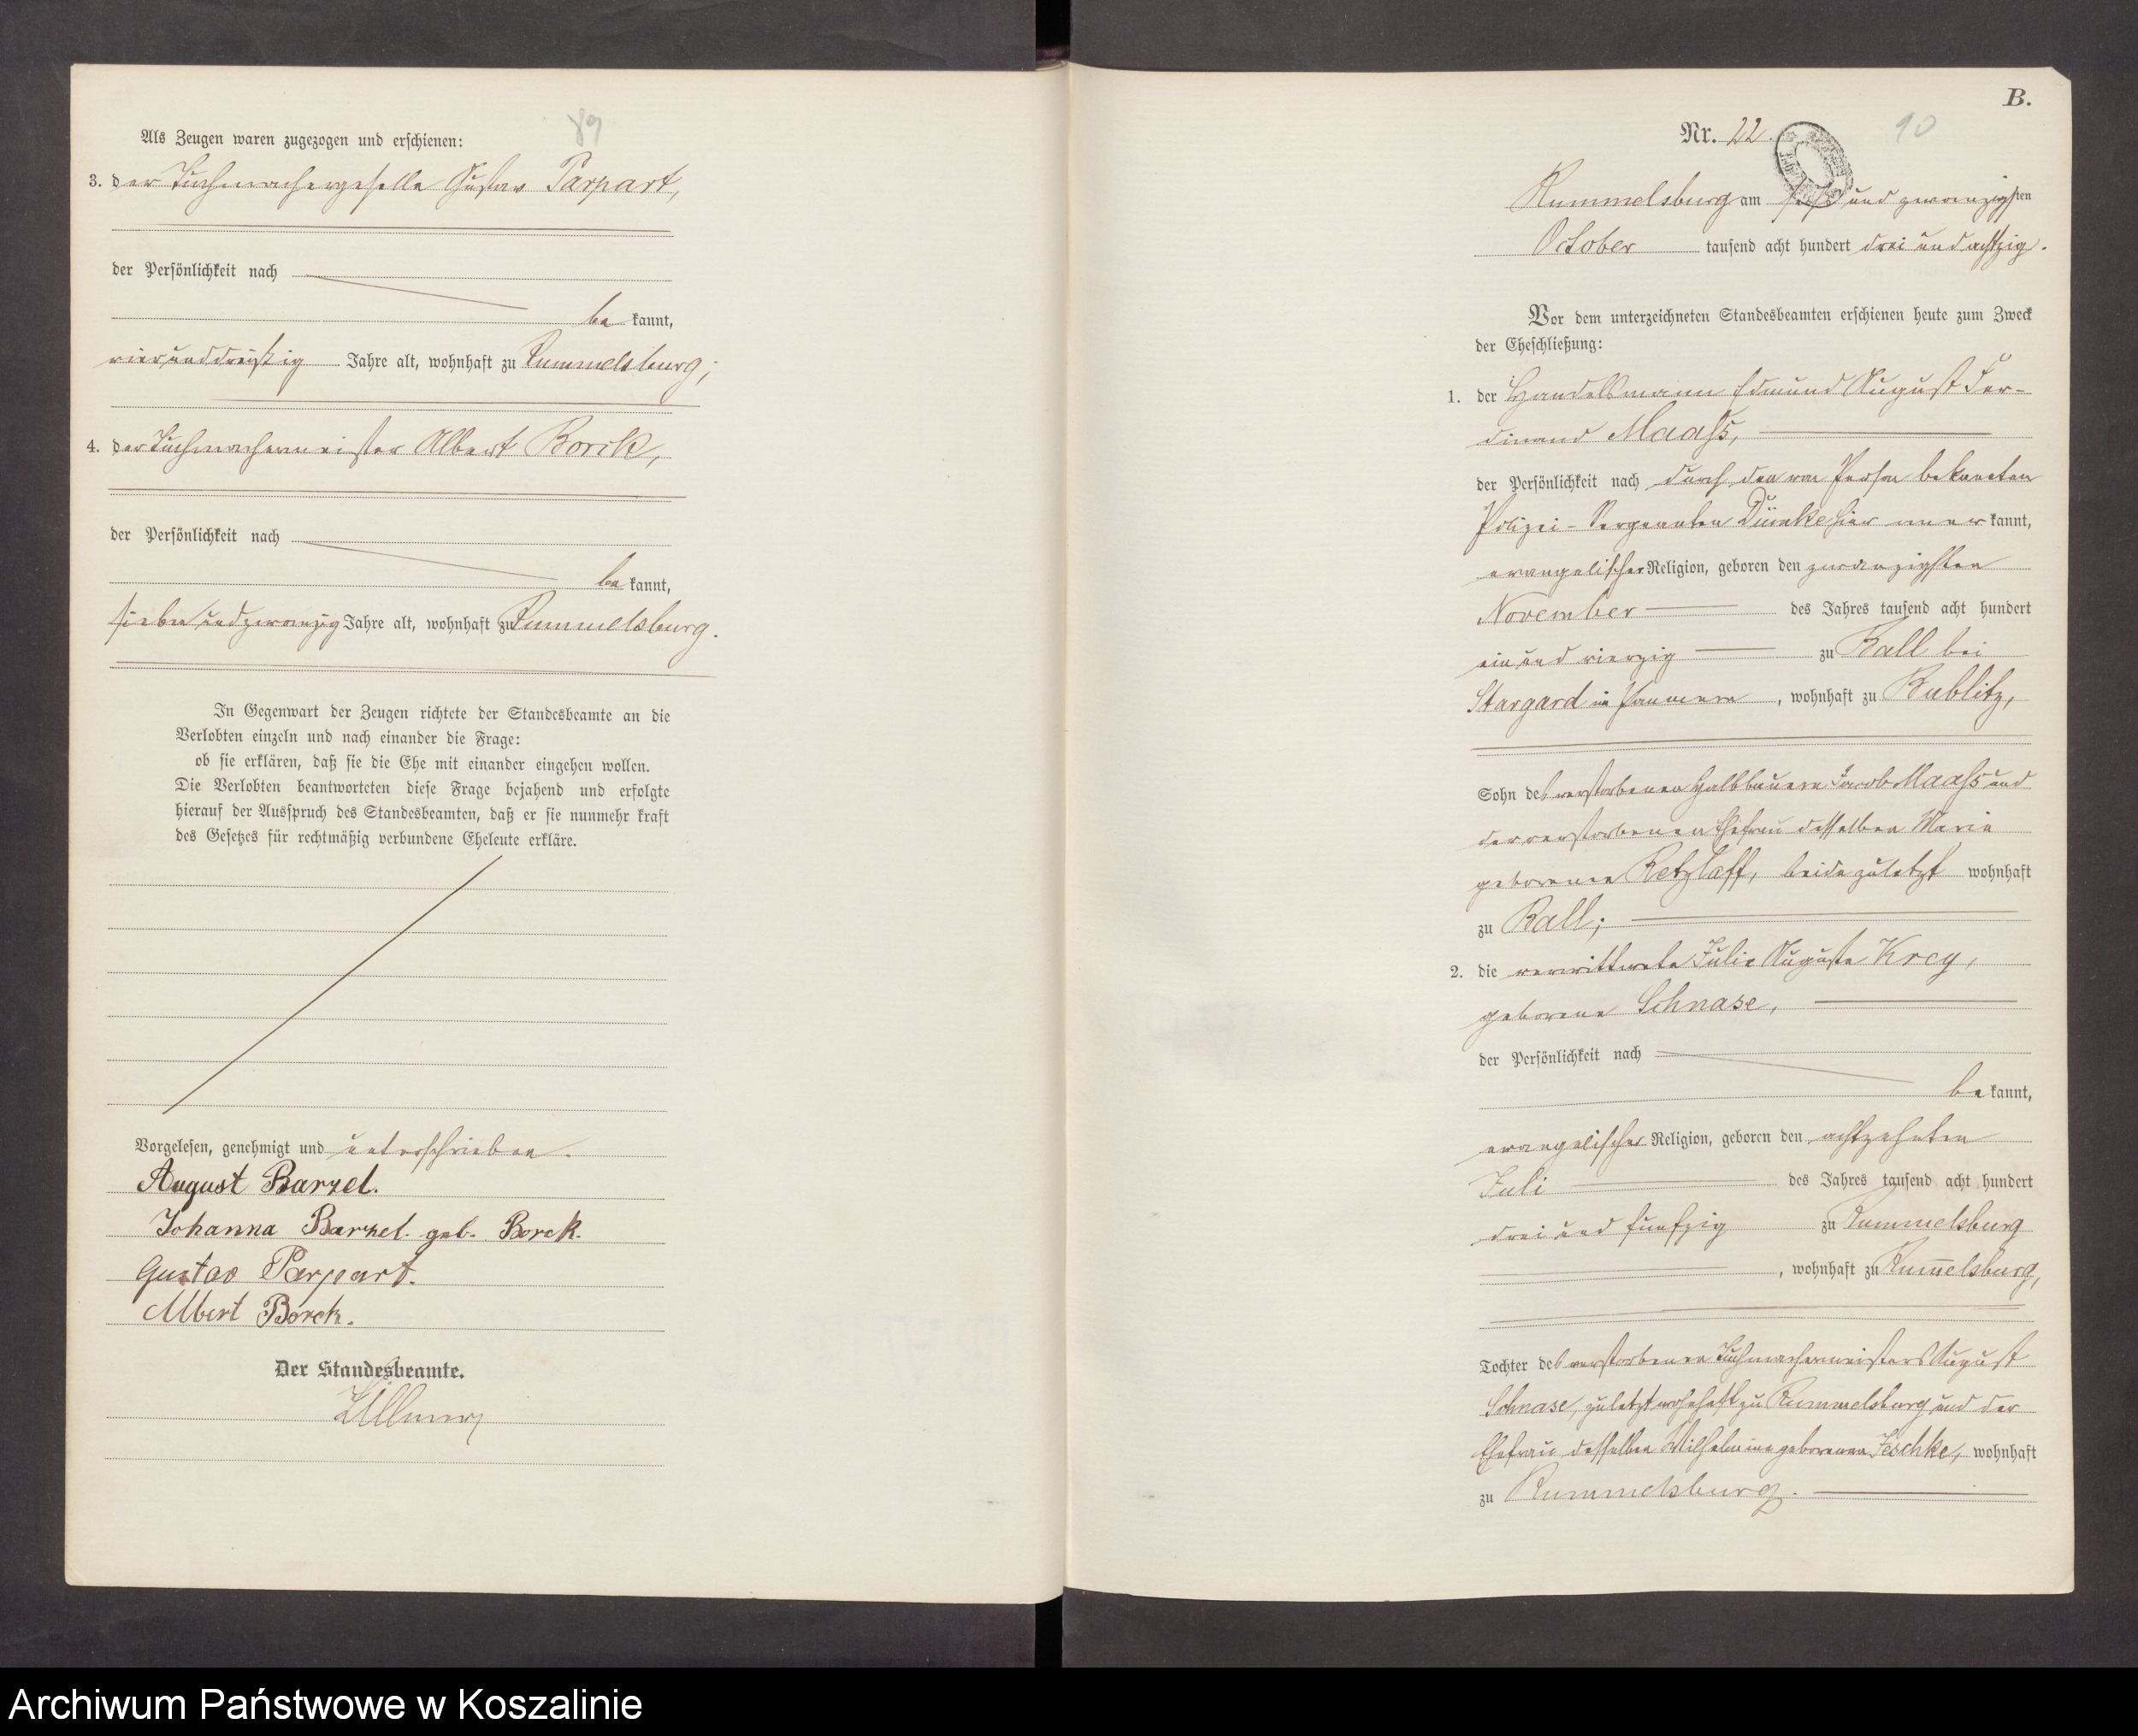 89
Als Zeugen waren zugezogen und erschienen:
3. der Tuchmachergeselle Gustav Parpart,
der Persönlichkeit nach
be kannt,
vierunddreißig Jahre alt, wohnhaft zu Rummelsburg;
4. der Tuchmachermeister Albert Borck,
der Persönlichkeit nach
be kannt,
siebenundzwanzig Jahre alt, wohnhaft zu Rummelsburg.
In Gegenwart der Zeugen richtete der Standesbeamte an die
Verlobten einzeln und nach einander die Frage:
ob sie erklären, daß sie die Ehe mit einander eingehen wollen.
Die Verlobten beantworteten diese Frage bejahend und erfolgte
hierauf der Ausspruch des Standesbeamten, daß er sie nunmehr kraft
des Gesetzes für rechtmäßig verbundene Eheleute erkläre.
Vorgelesen, genehmigt und unterschrieben.
August Barzel.
Johanna Barzel. geb. Borck.
Gustav Parpart.
Albert Borck.
Der Standesbeamte.
B.
Nr. 22. 90
Rummelsburg am sechs und zwanzigsten
October tausend acht hundert drei und achtzig.
Vor dem unterzeichneten Standesbeamten erschienen heute zum Zweck
der Eheschließung:
1. der Handelsmann Edmund August Fer-
dinand Maaß,
der Persönlichkeit nach durch den von Person bekannten
Polizei-Sergeanten Dümke hier aner kannt,
evangelischer Religion, geboren den zwanzigsten
November des Jahres tausend acht hundert
ein und vierzig zu Ball bei
Stargard in Pommern, wohnhaft zu Bublitz,
Sohn des verstorbenen Halbbauern Jacob Maaß und
der verstorbenen Ehefrau desselben Marie
geborenen Retzlaff, beide zuletzt wohnhaft
zu Ball;
2. die verwittwete Julie Auguste Krey,
geborene Schnase,
der Persönlichkeit nach
be kannt,
evangelischer Religion, geboren den achtzehnten
Juli des Jahres tausend acht hundert
drei und funfzig zu Rummelsburg
, wohnhaft zu Rummelsburg,
Tochter des verstorbenen Tuchmachermeisters August
Schnase, zuletzt wohnhaft zu Rummelsburg und der
Ehefrau desselben Wilhelmine geborenen Jeschke, wohnhaft
zu Rummelsburg.
Archiwum Państwowe w Koszalinie